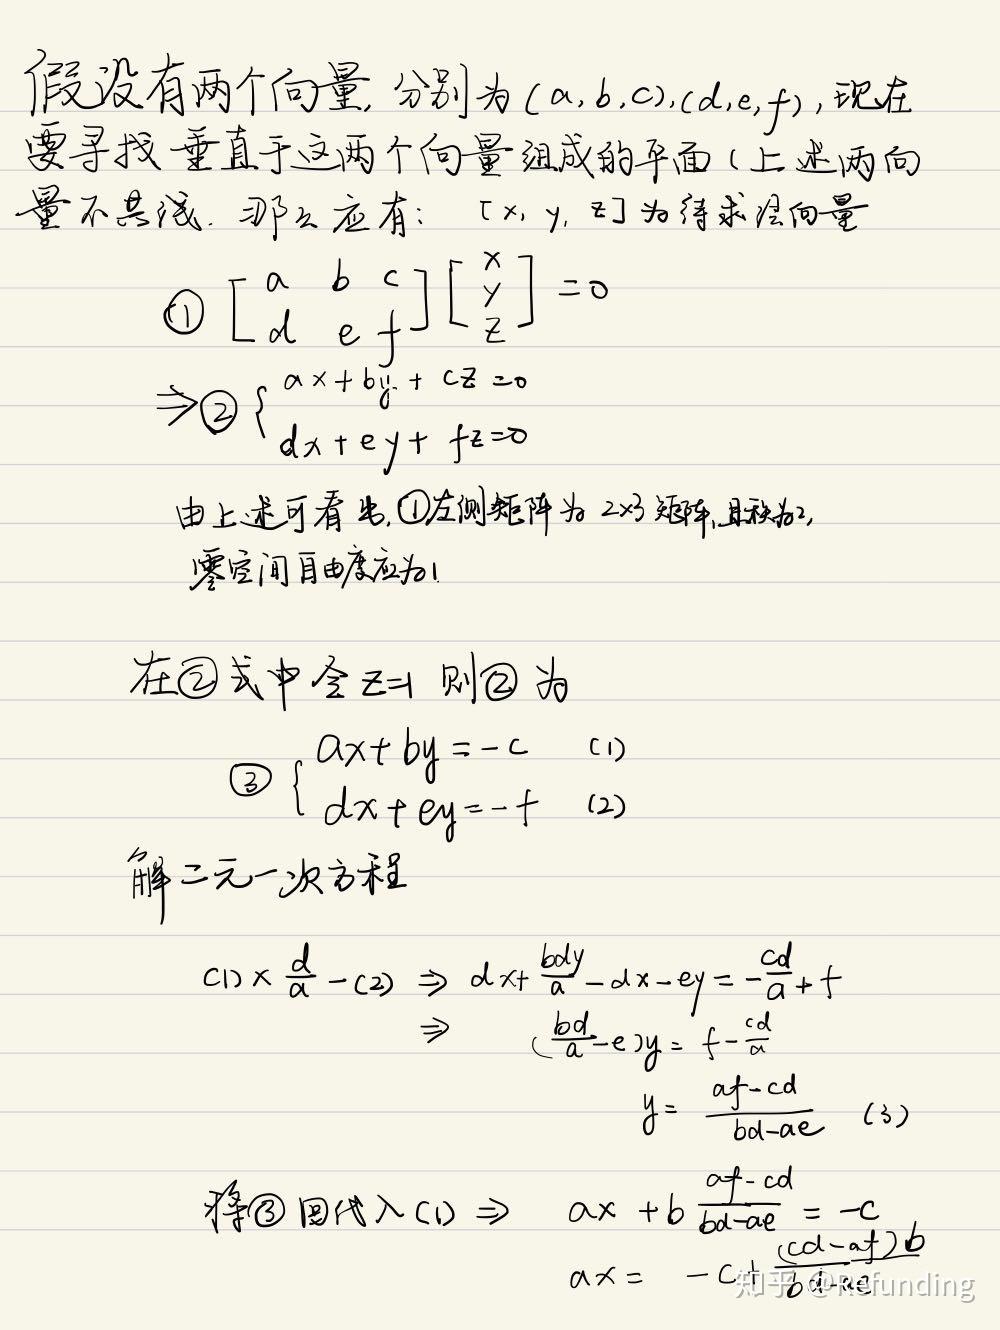 假设有两个向量,分别为(a,b,c),(d,e,f),现在
要寻找垂直于这两个向量组成的平面(上述两向
量不共线.那么应有: [x, y, z]为待求法向量
① [a b c; d e f] [x; y; z] = 0
⇒② { ax+by+cz=0
dx+ey+fz=0
由上述可看出,①左侧矩阵为2×3矩阵,且秩为2,
零空间自由度应为1.
在②式中令z=1 则②为
③ { ax+by=-c (1)
dx+ey=-f (2)
解二元一次方程
(1)× d/a -(2) ⇒ dx+ bdy/a -dx-ey=- cd/a +f
⇒ (bd/a -e)y= f- cd/a
y= (af-cd)/(bd-ae) (3)
将③回代入(1) ⇒ ax +b (af-cd)/(bd-ae) = -c
ax= -c+ (cd-af)b/(bd-ae)
知乎 @Refunding